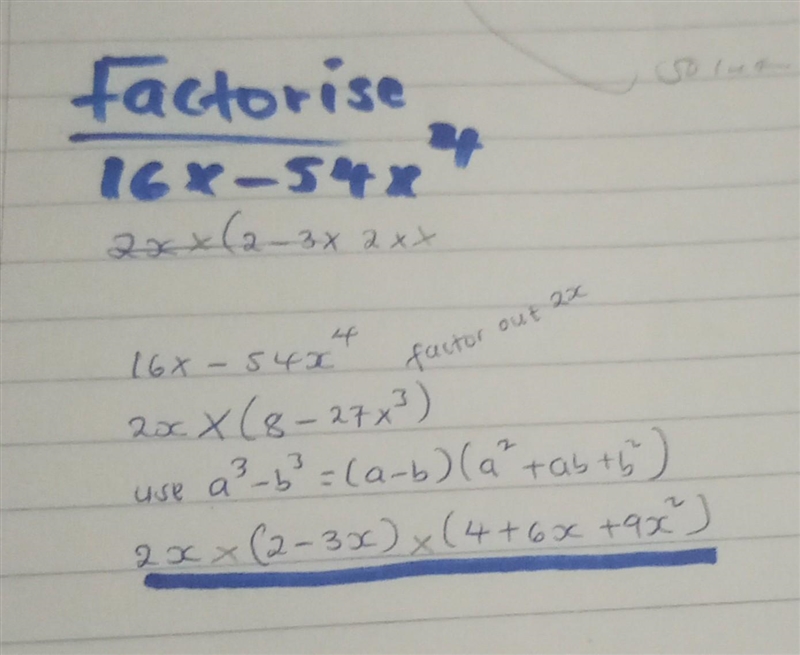 Factorise
16x - 54x⁴
2x × (2 - 3x 2xx
16x - 54x⁴ factor out 2x
2x × (8 - 27x³)
use a³ - b³ = (a - b) (a² + ab + b²)
2x × (2 - 3x) × (4 + 6x + 9x²)